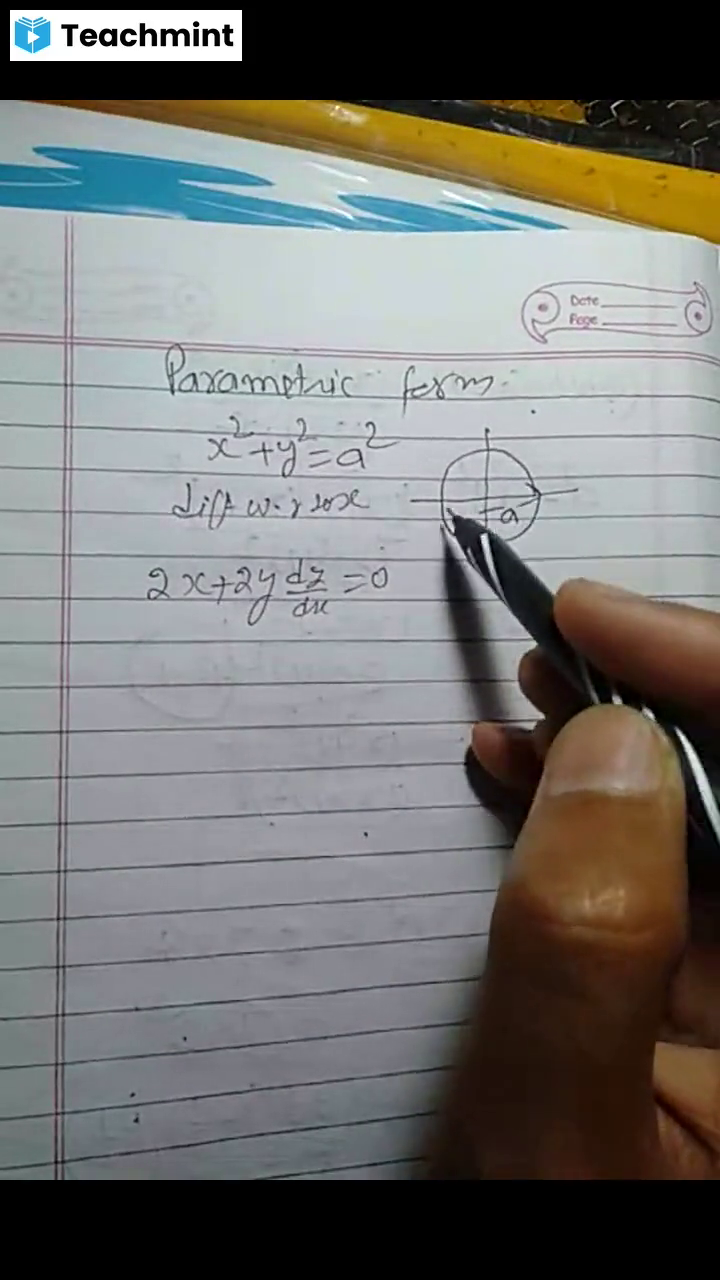 Teachmint
Date
Page
Parametric form.
x²+y²=a²
diff w.r to x
a
2x+2y dy/dx =0